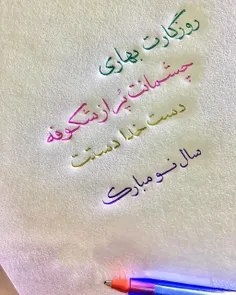 روزگارت بهاری
چشمانت پُر از شکوفه
دست خدا دستت
سال نو مبارک